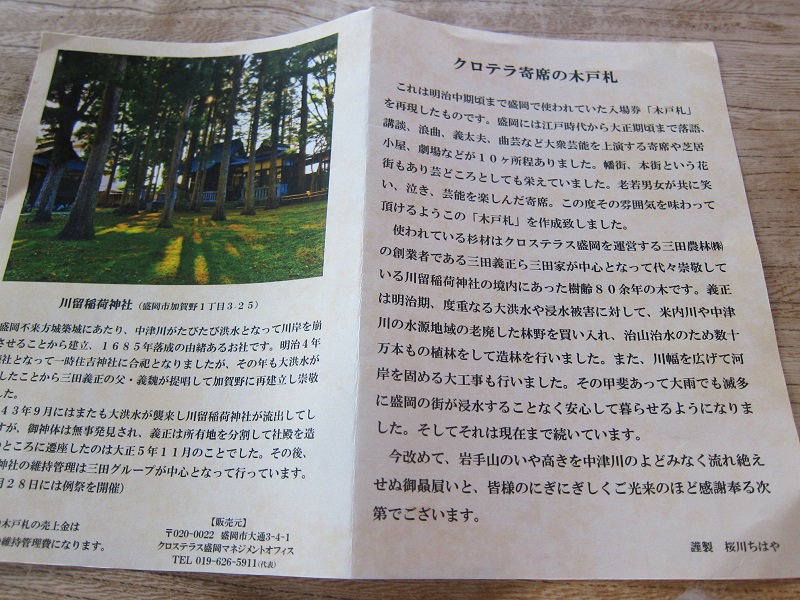 川留稲荷神社（盛岡市加賀野１丁目3-25）
盛岡不来方城築城にあたり、中津川がたびたび洪水となって川岸を崩
させることから建立、１６８５年落成の由緒あるお社です。明治４年
社となって一時住吉神社に合祀となりましたが、その年も大洪水が
したことから三田義正の父・義魏が提唱して加賀野に再建立し崇敬
した。
４３年９月にはまたも大洪水が襲来し川留稲荷神社が流出してし
すが、御神体は無事発見され、義正は所有地を分割して社殿を造
のところに遷座したのは大正５年１１月のことでした。その後、
神社の維持管理は三田グループが中心となって行っています。
月２８日には例祭を開催）
木戸札の売上金は
維持管理費になります。
【販売元】
〒020-0022　盛岡市大通3-4-1
クロステラス盛岡マネジメントオフィス
TEL 019-626-5911(代表)
クロテラ寄席の木戸札
これは明治中期頃まで盛岡で使われていた入場券「木戸札」
を再現したものです。盛岡には江戸時代から大正期頃まで落語、
講談、浪曲、義太夫、曲芸など大衆芸能を上演する寄席や芝居
小屋、劇場などが１０ヶ所程ありました。幡街、本街という花
街もあり芸どころとしても栄えていました。老若男女が共に笑
い、泣き、芸能を楽しんだ寄席。この度その雰囲気を味わって
頂けるようこの「木戸札」を作成致しました。
使われている杉材はクロステラス盛岡を運営する三田農林㈱
の創業者である三田義正ら三田家が中心となって代々崇敬して
いる川留稲荷神社の境内にあった樹齢８０余年の木です。義正
は明治期、度重なる大洪水や浸水被害に対して、米内川や中津
川の水源地域の老廃した林野を買い入れ、治山治水のため数十
万本もの植林をして造林を行いました。また、川幅を広げて河
岸を固める大工事も行いました。その甲斐あって大雨でも滅多
に盛岡の街が浸水することなく安心して暮らせるようになりま
した。そしてそれは現在まで続いています。
今改めて、岩手山のいや高きを中津川のよどみなく流れ絶え
せぬ御贔屓いと、皆様のにぎにぎしくご光来のほど感謝奉る次
第でございます。
謹製　桜川ちはや